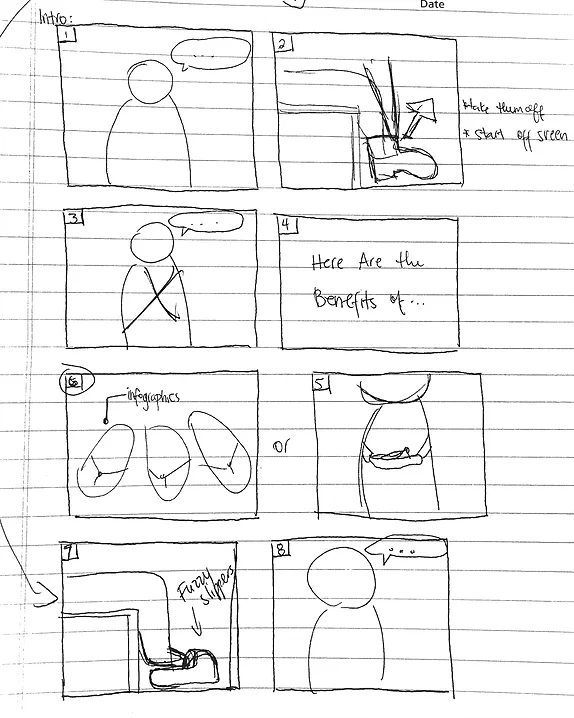 Date
Intro:
1
....
2
* take them off
* start off sreen
3
....
4
Here Are the
Benefits of ...
6
infographics
or
5
7
Fuzzy
slippers
8
...